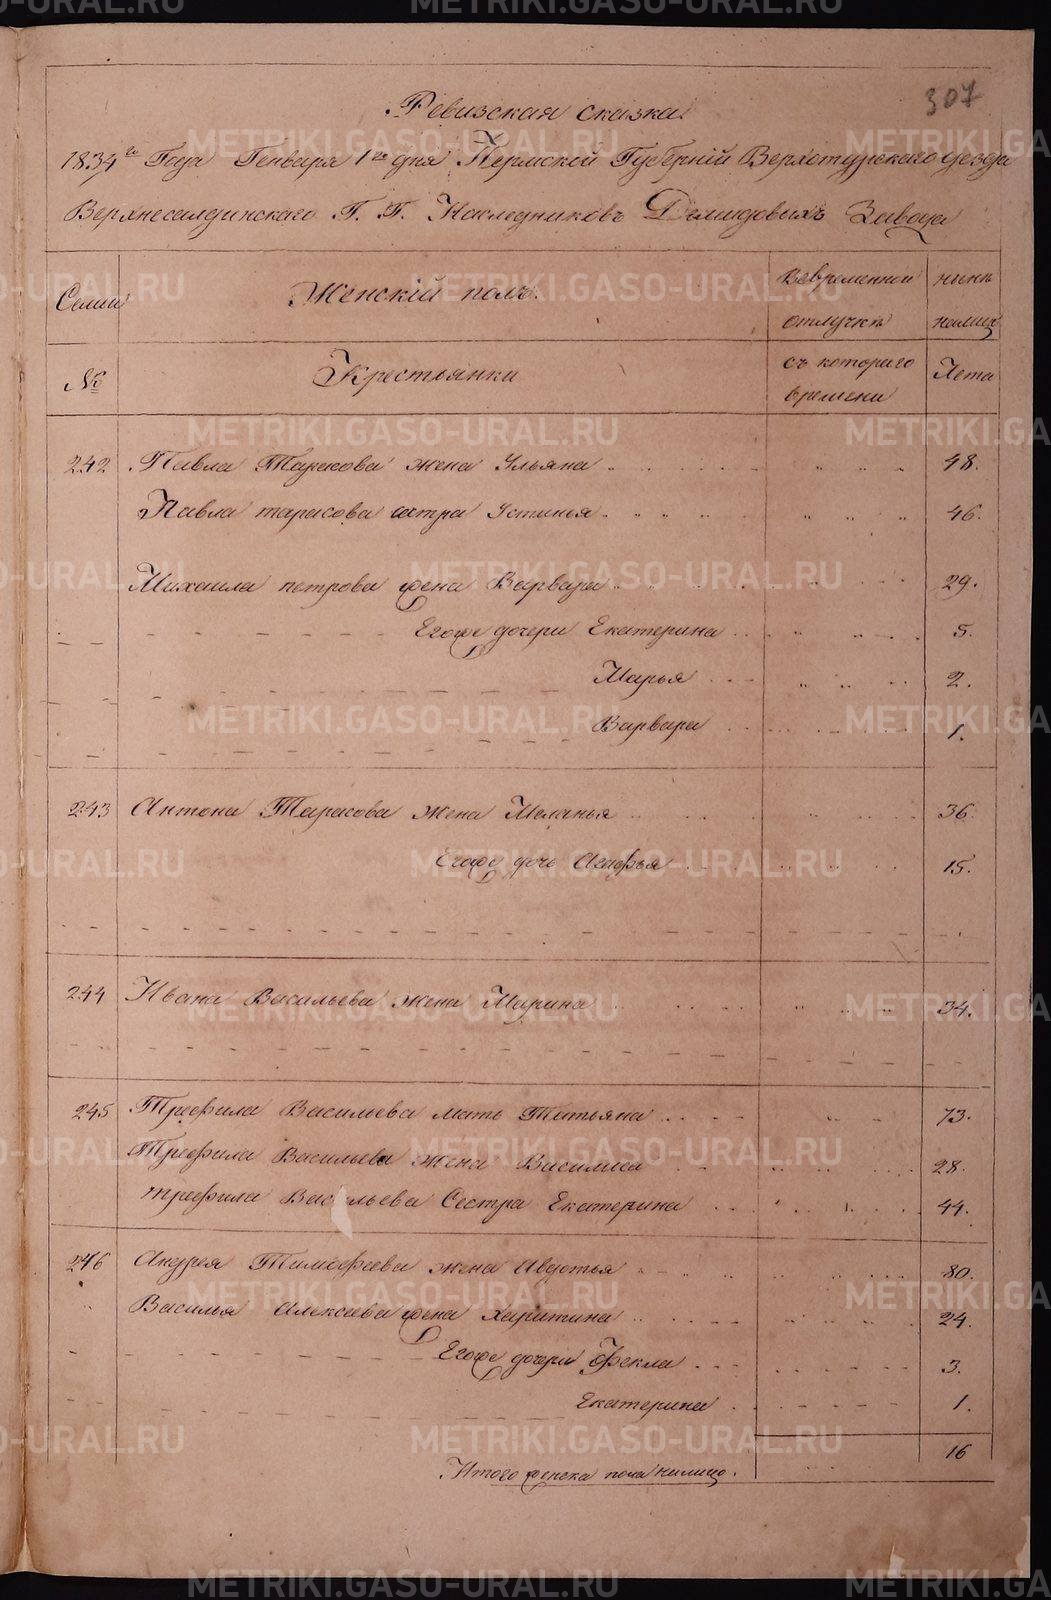 307
Ревизская сказка
1834го Года Генваря 1го дня Пермской Губернiи Верхотурьскаго уезда
Верхнесалдинскаго Г. Г. Наследниковъ Демидовыхъ Завода
Семьи Женскiй полъ. Вовременной отлучкѣ ныне налицо
№ Крестьянки съ котораго времени Лета
242 Павла Тарасова жена Ульяна 48.
Павла тарасова сестра Устинья 46.
Михаила петрова жена Варвара 29.
Егоже дочери Екатерина 5.
Марья 2.
Варвара 1.
243 Антона Тарасова жена Меланья 36.
Егоже дочь Агафья 15.
244 Ивана Васильева жена Марина 34.
245 Трефила Васильева мать Татьяна 73.
Трефила Васильева жена Василиса 28.
трефила Васильева Сестра Екатерина 44.
246 Андрея Тимофеева жена Авдотья 80.
Василья Алексеева жена Харитина 24.
Егоже дочери Фекла 3.
Екатерина 1.
Итого женска пола налицо. 16
METRIKI.GASO-URAL.RU